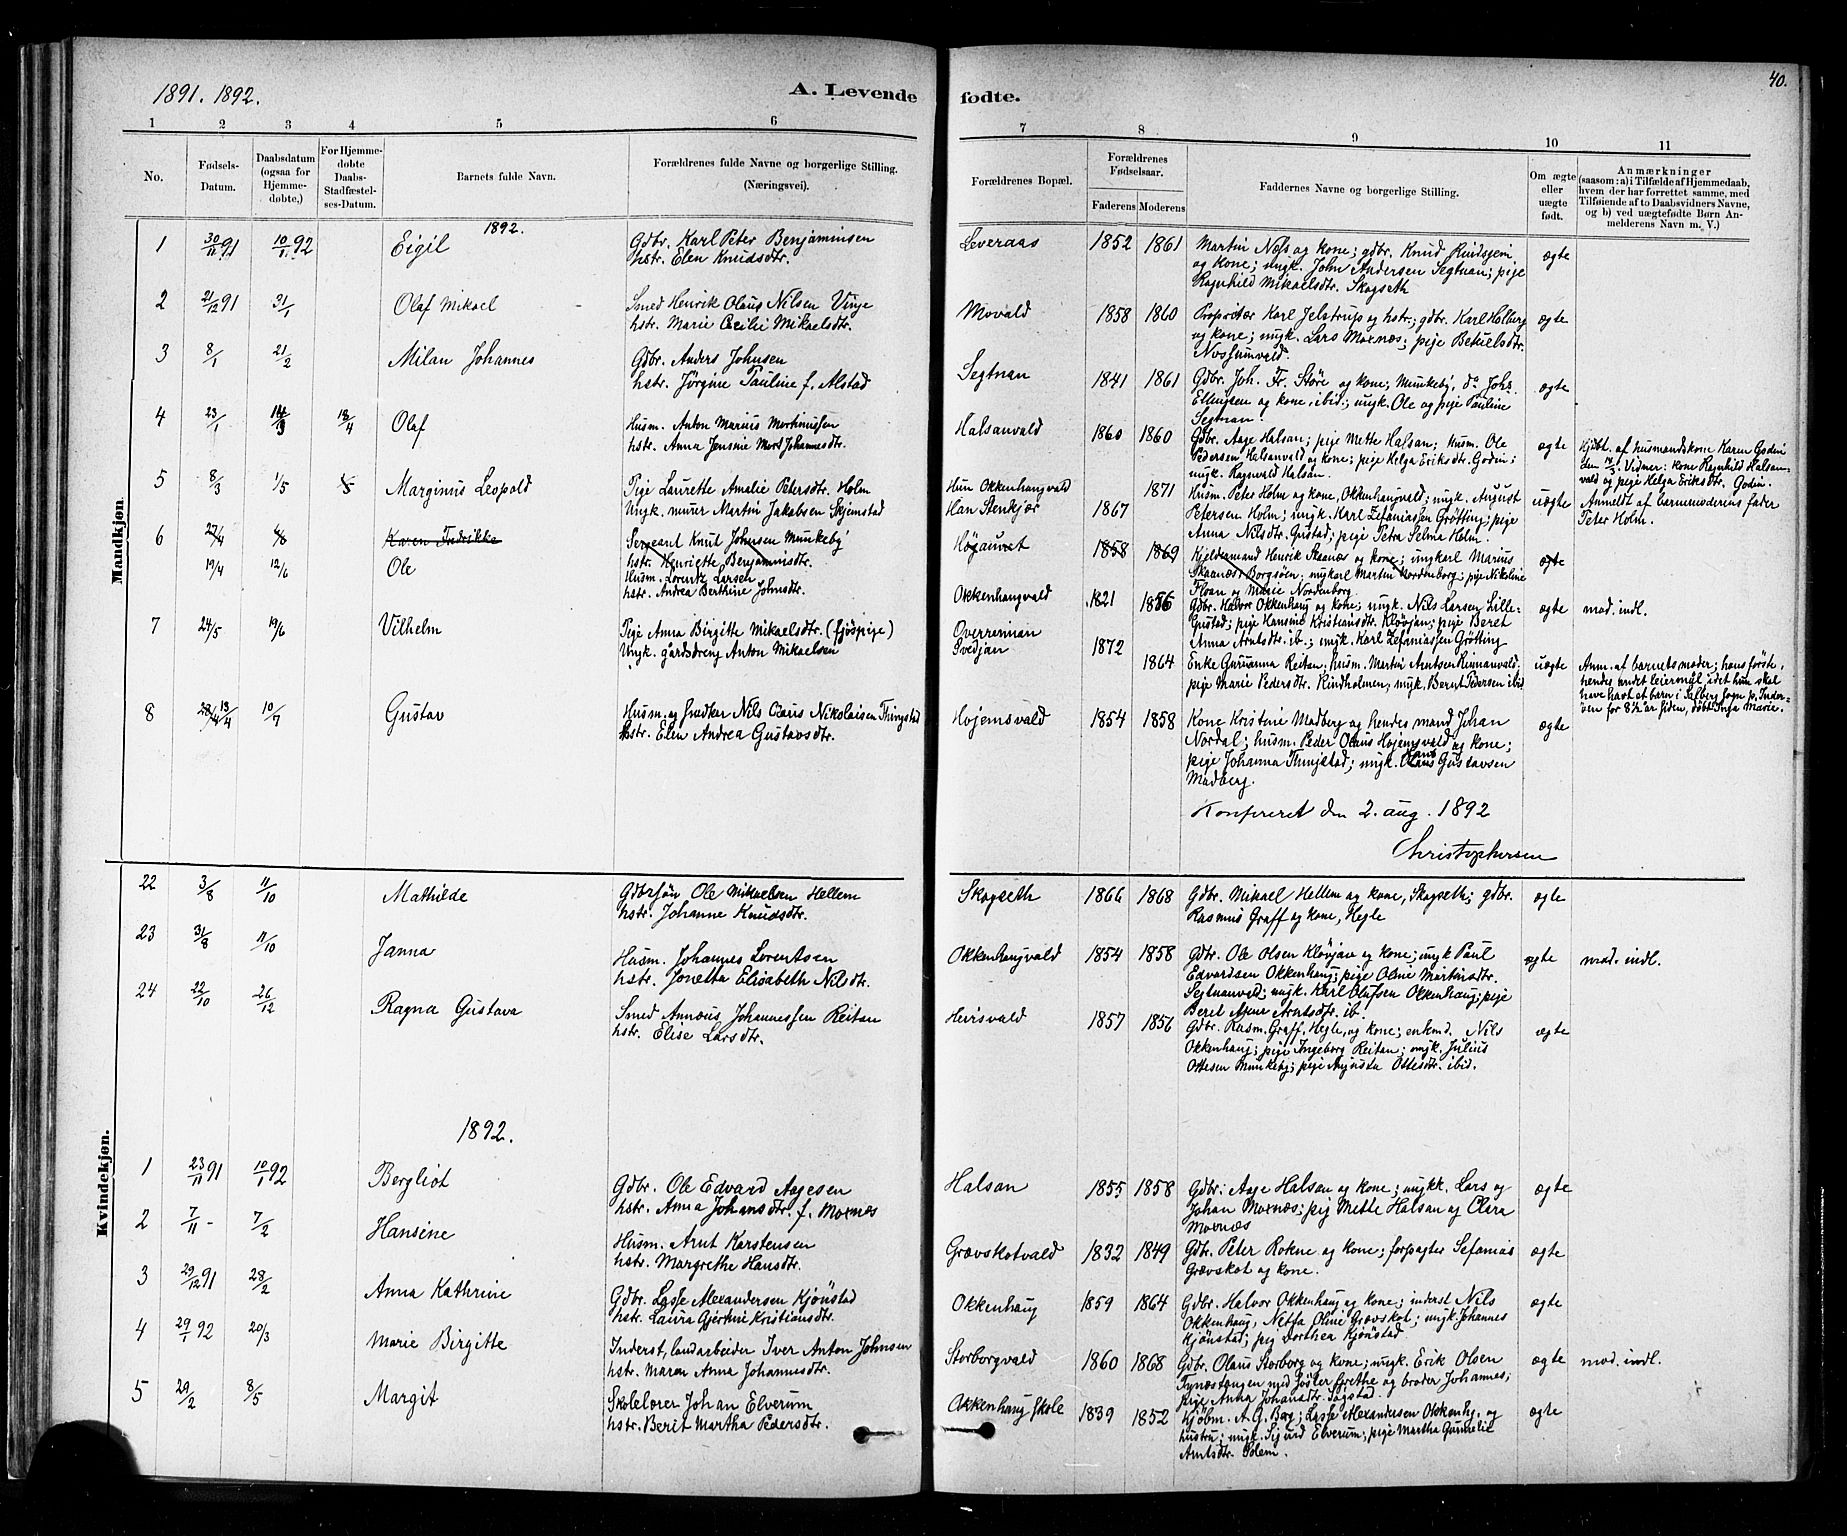 40.
1891. 1892.
A. Levende fødte.
1 2 3 4 5 6 7 8 9 10 11
No.
Fødsels-
Datum.
Daabsdatum
(ogsaa for
Hjemme-
døbte,)
For Hjemme-
døbte
Daabs-
Stadfæstel-
ses-Datum.
Barnets fulde Navn.
Forældrenes fulde Navne og borgerlige Stilling.
(Næringsvei).
Forældrenes Bopæl.
Forældrenes
Fødselsaar.
Faderens Moderens
Faddernes Navne og borgerlige Stilling.
Om ægte
eller
uægte
født.
Anmærkninger
(saasom: a) i Tilfælde af Hjemmedaab,
hvem der har forrettet samme, med
Tilføiende af to Daabsvidners Navne,
og b) ved uægtefødte Børn An-
melderens Navn m. V.)
Mandkjøn
1892.
1 30/11 91 10/1 92 Eigil
Gdbr. Karl Peter Benjaminsen
hstr. Elen Knudsdtr.
Leveraas 1852 1861
Martin Næs og kone; gdbr. Knud Rindsem
og kone; ungk. John Andersen Segtnan; pige
Ragnhild Mikaelsdtr. Skogseth
ægte
2 21/12 91 31/1 Olaf Mikael
Smed Henrik Olaus Nilsen Vinje
hstr. Marie Cecilie Mikaelsdtr.
Movald 1858 1860
Propritær Karl Jelstrup og hstr; gdbr. Karl Holberg
og kone; ungk. Lars Moxnæs; pige Betuelsdtr.
Nossumvald.
ægte
3 8/1 21/2 Milan Johannes
Gdbr. Anders Johnsen
hstr. Jørgine Pauline f. Alstad
Segtnan 1841 1861
Gdbr. Joh. Fr. Støre og kone; Munkeby, do Johs.
Ellingsen og kone, ibid.; ungk. Ole og pige Pauline
Segtnan.
ægte
4 23/1 14/3 18/4 Olaf
Husm. Anton Marius Mortinussen
hstr. Anna Jensine Johannesdtr.
Halsanvald 1860 1860
Gdbr. Aage Halsan; pige Mette Halsan; husm. Ole
Pedersen Halsanvald og kone; pige Helga Eriksdtr. Godin;
ungk. Ragnvald Halsan.
ægte
Hjdbt. af husmandskone Karen Godin
den 14/3. Vidner: kone Ragnhild Halsan-
vald og pige Helga Eriksdtr. Godin.
5 8/3 1/5 Marginus Leopold
Pige Laurette Amalie Petersdtr. Holm
Ungk. murer Martin Jakobsen Skjemstad
Hun Okkenhaugvald
Han Stenkjær 1867 1871
Husm. Peter Holm og kone, Okkenhaugvald; ungk. August
Petersen Holm; ungk. Karl Zefaniassen Grøtting; pige
Anna Nilsdtr. Gustad; pige Petra Selma Holm.
uægte
Anmeldt af barnemoderens fader
Peter Holm.
6 27/4 6/8 Karen Fredrikke
Sergeant Knut Johnsen Munkeby
hstr. Henriette Benjaminsdtr.
1858 1869
Kjeldermand Henrik Skaanæs og kone; ungkarl Marius
Skaanæs, Borgsøen; ungkarl Martin Nordenborg; pige Nikoline
Floan og Marie Nordenborg
ægte
19/4 12/6 Ole
Husm. Lorentz Larsen
hstr. Andrea Berthine Johnsdtr.
Okkenhaugvald 1821 1856
Gdbr. Halvor Okkenhaug og kone; ungk. Nils Larsen Lille-
Gustad; pige Hansine Kristiansdtr. Kløvjan; pige Beret
Anna Arntsdtr. ib.; ungk. Karl Zefaniassen Grøtting
ægte
mod. indl.
7 24/5 19/6 Vilhelm
Pige Anna Birgitte Mikaelsdtr. (fjøspige)
Ungk. gårdsdreng Anton Mikaelsen
Overreinnan
Svedjan 1872 1864
Enke Gurianna Reitan; husm. Martin Arntsen Rinnanvald;
pige Marie Pedersdtr. Rindholmen; ungk. Bernt Pedersen ibid
uægte
Anm. af barnets moder; hans første,
hendes andet leiermål idet hun skal
have havt et barn i Salberg sogn p. Inder-
øen for 8½ år siden, døbt Inga Marie.
8 13/4 10/7 Gustav
Husm. og snedker Nils Olaus Nikolaisen Thingstad
hstr. Elen Andrea Gustavsdtr.
Hojemsvald 1854 1858
Kone Kristine Madberg og hendes mand Johan
Nordal; husm. Peder Olaus Hojemsvald og kone;
pige Johanna Thingstad; ungk. Hans Gustavsen
Madberg.
ægte
Konfereret den 2. aug. 1892
Christophersen
Kvindekjøn.
22 3/8 11/10 Mathilde
Gdbrsøn Ole Mikaelsen Hellem
hstr. Johanne Knudsdtr.
Skogseth 1866 1868
Gdbr. Mikael Hellem og kone, Skogseth; gdbr.
Rasmus Graff og kone, Hegle
ægte
23 31/8 11/10 Janna
Husm. Johannes Lorentsen
hstr. Jonetta Elisabeth Nilsdtr.
Okkenhaugvald 1854 1858
Gdbr. Ole Olsen Kløvjan og kone; ungk Paul
Edvardsen Okkenhaug; pige Oline Martinsdtr.
Segtnanvald; ungk. Karl Olufsen Okkenhaug; pige
Beret Anna Arntsdtr. ib.
ægte
mod. indl.
24 22/10 26/12 Ragna Gustava
Smed Annæus Johannessen Reitan
hstr. Elise Larsdtr.
Heirsvald 1857 1856
Gdbr. Rasm. Graff, Hegle, og kone; enkmd. Nils
Okkenhaug; pige Ingeborg Reitan; ungk. Julius
Ottesen Munkeby; pige Augusta Ottesdtr. ibid.
ægte
1892.
1 23/11 91 10/1 92 Bergliot
Gdbr. Ole Edvard Aagesen
hstr. Anna Johansdtr. f. Moxnæs
Halsan 1855 1858
Gdbr. Aage Halsan og kone; ungkk. Lars og
Johan Moxnæs; pig Mette Halsan og Clara
Moxnæs
ægte
2 7/11 - 7/2 Hansine
Husm. Arnt Karstensen
hstr. Margrethe Hansdtr.
Grævskotvald 1832 1849
Gdbr. Peter Rokne og kone; forpagter Sefanias
Grævskot og kone.
ægte
3 29/12 91 28/2 Anna Kathrine
Gdbr. Lasse Alexandersen Kjønstad
hstr. Laura Gjertine Kristiansdtr.
Okkenhaug 1859 1864
Gdbr. Halvor Okkenhaug og kone; inderst Nils
Okkenhaug, Netta Oline Grævskot; ungk. Johannes
Kjønstad; pig Dorthea Kjønstad
ægte
4 29/1 92 20/3 Marie Birgitte
Inderst, landarbeider Iver Anton Johnsen
hstr. Maren Anna Johannesdtr.
Storborgvald 1860 1868
Gdbr. Olaus Storborg og kone; ungk. Erik Olsen
Tynæstangen med søster Grethe og broder Johannes;
pige Anna Johansdtr. Sogstad.
ægte
mod. indl.
5 29/2 8/5 Margit
Skolelærer Johan Elverum
hstr. Berit Martha Pedersdtr.
Okkenhaug Skole 1839 1852
Kjøbm. A. G. Berg; Lasse Alexandersen Okkenhg. og
hustru; ungk. Sigurd Elverum; pige Martha Gunnelie
Arntsdtr. Solem.
ægte